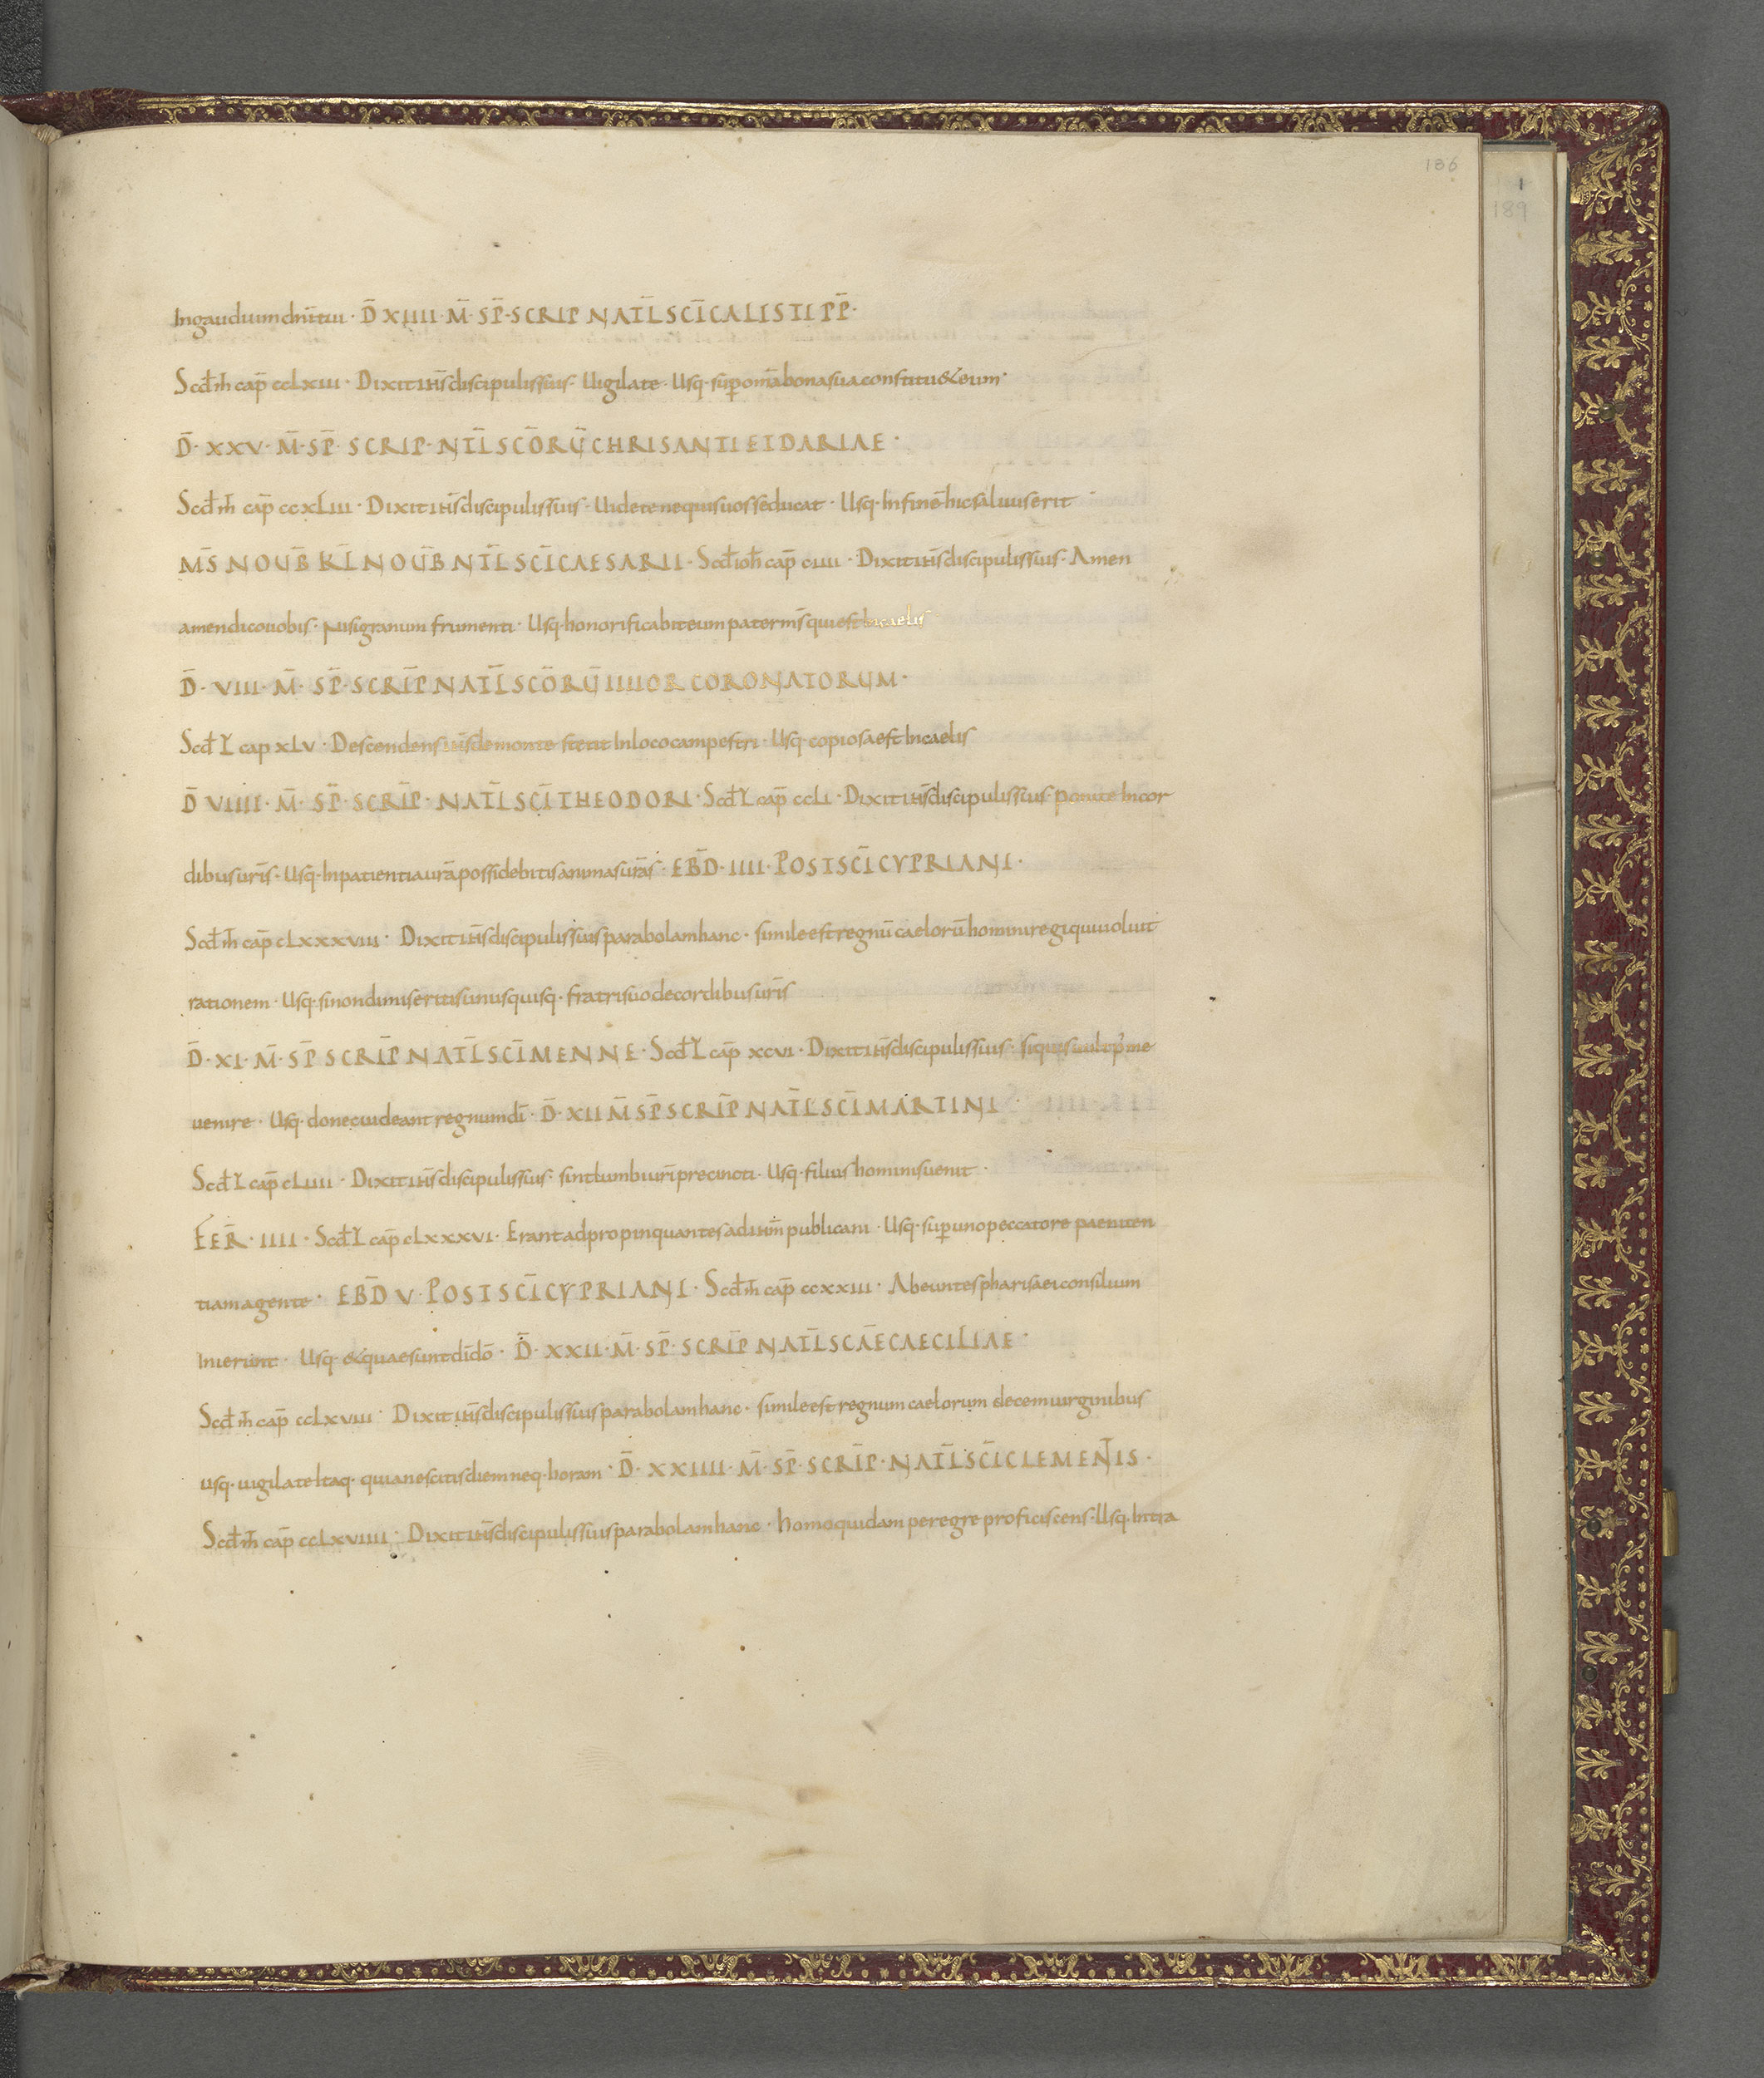 186
1
189
In gaudium dnı̄ tui · D̄ XIIII · M̄ · SP̄ · SCRIP NAT̄L SC̄I CALISTI PP̄ ·
Scd̄ m̄ cap̄ ccLxiii · Dixit ih̄s discipulis suis · Uigilate · Usq · sup om̄a bona sua constitu& eum ·
D̄ · XXV · M̄ · SP̄ · SCRIP · NT̄L SC̄ORŪ CHRISANTI ET DARIAE ·
Scd̄ m̄ cap̄ ccxLiii · Dixit ih̄s discipulis suis · Uidete ne quis uos seducat · Usq · In finē hic saluus erit
M̄S NOUB̄ KL̄ NOUB̄ NT̄L SC̄I CAESARII · Scd̄ ioh̄ cap̄ ciiii · Dixit ih̄s discipulis suis · Amen
amen dico uobis · Nisi granum frumenti · Usq · honorificabit eum pater ms̄ qui est In caelis
D̄ · VIII · M̄ · SP̄ · SCRIP̄ NAT̄L SC̄ORŪ IIIIOR CORONATORUM ·
Scd̄ L cap xLv · Descendens ih̄s de monte stetit In loco campestri · Usq · copiosa est In caelis
D̄ VIIII · M̄ · SP̄ · SCRIP̄ · NAT̄L SC̄I THEODORI · Scd̄ L cap̄ ccLi · Dixit ih̄s discipulis suis · ponite In cor
dibus ur̄is · Usq · In patientia ur̄a possidebitis animas ur̄as · EBD̄ · IIII · POST SC̄I CYPRIANI ·
Scd̄ m̄ cap̄ cLxxxviii · Dixit ih̄s discipulis suis parabolam hanc · simile est regnū caelorū homini regi qui uoluit
rationem · Usq · si non dimiseritis unusquisq · fratri suo de cordibus ur̄is
D̄ · XI · M̄ · SP̄ SCRIP̄ NAT̄L SC̄I MENNE · Scd̄ L cap̄ xcvi · Dixit ih̄s discipulis suis · siquis uult p' me
uenire · Usq · donec uideant regnum dī · D̄ · XII M̄ SP̄ SCRIP̄ NAT̄L SC̄I MARTINI ·
Scd̄ L cap̄ cLiiii · Dixit ih̄s discipulis suis · sint lumbi ur̄i precincti · Usq · filius hominis uenit ·
FER̄ · IIII · Scd̄ L cap̄ cLxxxvi · Erant adpropinquantes ad ihm̄ publicani · Usq · sup uno peccatore paeniten
tiam agente · EBD̄ V · POST SC̄I CYPRIANI · Scd̄ m̄ cap̄ ccxxiii · Abeuntes pharisaei consilium
inierunt · Usq · & quae sunt dı̄ dō · D̄ · XXII · M̄ · SP̄ · SCRIP̄ NAT̄L SCĀE CAECILIAE ·
Scd̄ m̄ cap̄ ccLxviii · Dixit ih̄s discipulis suis parabolam hanc · simile est regnum caelorum decem uirginibus
usq · uigilate Itaq · quia nescitis diem neq · horam · D̄ · XXIIII · M̄ · SP̄ · SCRIP̄ · NAT̄L SC̄I CLEMENTIS ·
Scd̄ m̄ cap̄ ccLxviiii · Dixit ih̄s discipulis suis parabolam hanc · homo quidam peregre proficiscens · Usq · Intra